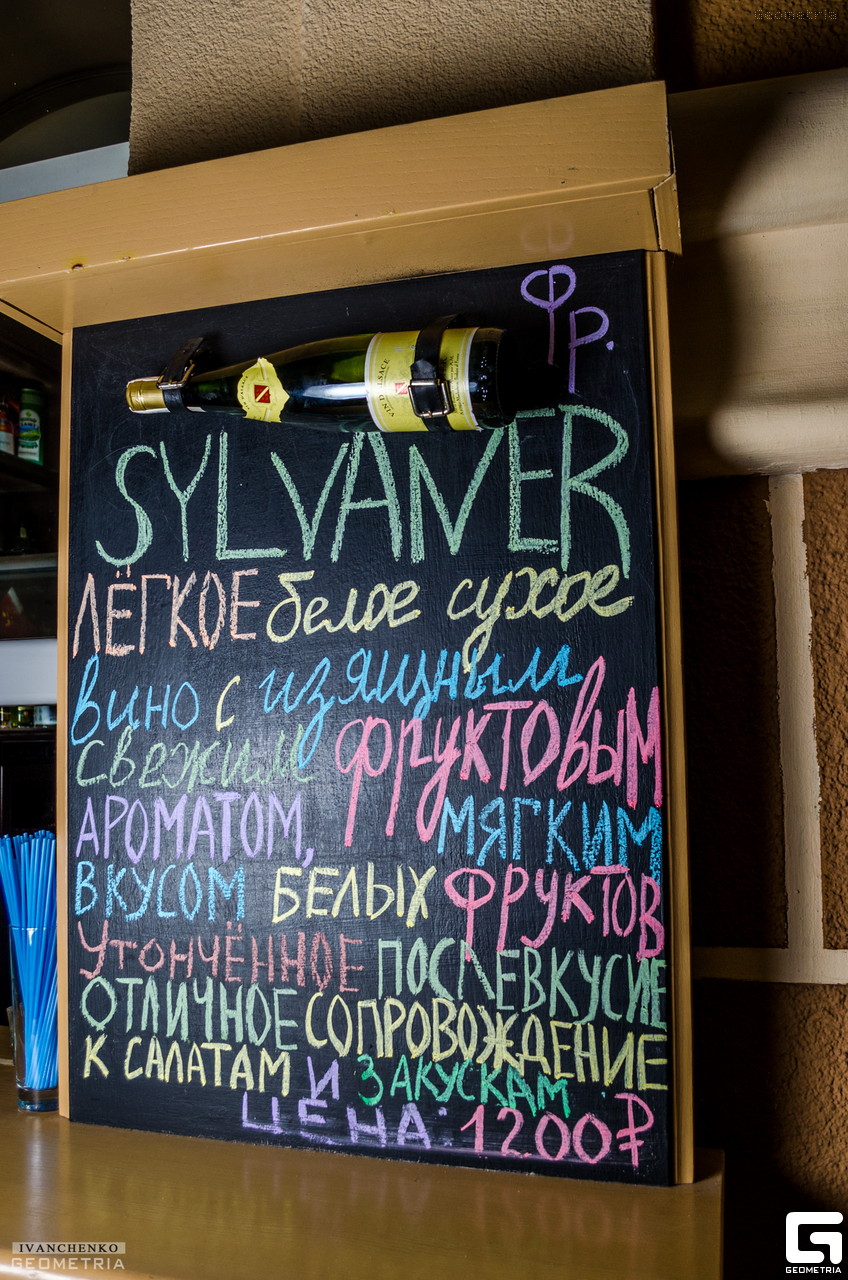 Geometria
ФР.
VIN D'ALSACE
SYLVANER
ЛЁГКОЕ белое сухое
вино с изящным
свежим фруктовым
АРОМАТОМ, МЯГКИМ
ВКУСОМ БЕЛЫХ ФРУКТОВ
УТОНЧЁННОЕ ПОСЛЕВКУСИЕ
ОТЛИЧНОЕ СОПРОВОЖДЕНИЕ
К САЛАТАМ И ЗАКУСКАМ
ЦЕНА: 1200₽
IVANCHENKO
GEOMETRIA
GEOMETRIA